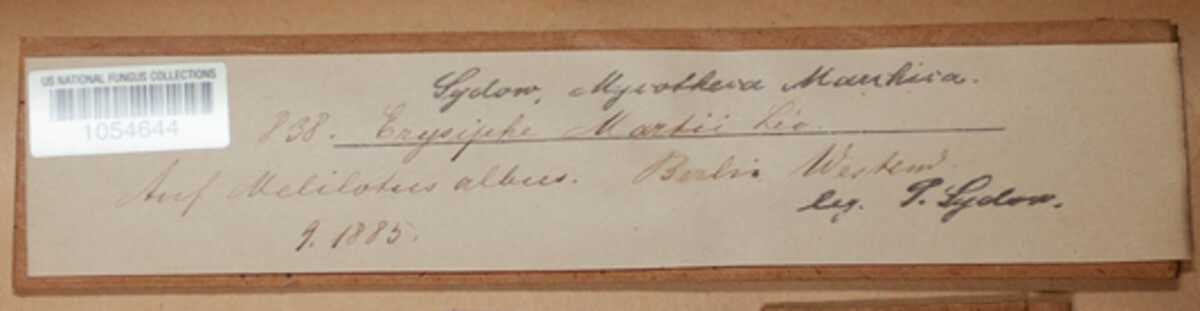 US NATIONAL FUNGUS COLLECTIONS
1054644
Sydow, Mycotheca Marchica.
838. Erysiphe Martii Lév.
Auf Melilotus albus. Berlin Westend.
leg. P. Sydow.
9. 1885.